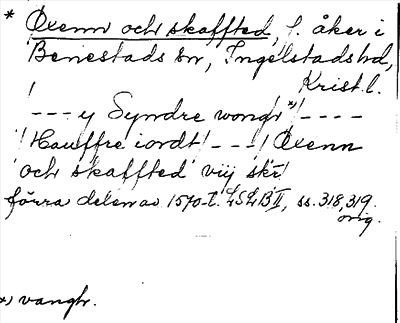 * Oxenn och skaffted, f. åker i
Benestads sn, Ingelstads hd,
Krist. l.
! --- y Syndre wongr *) ! ----
! Hauffre iordt ! --- ! Oxenn
och skaffted viij skr !
förra delen av 1570-t. LSLB II, ss. 318, 319.
orig.
*) vangh.